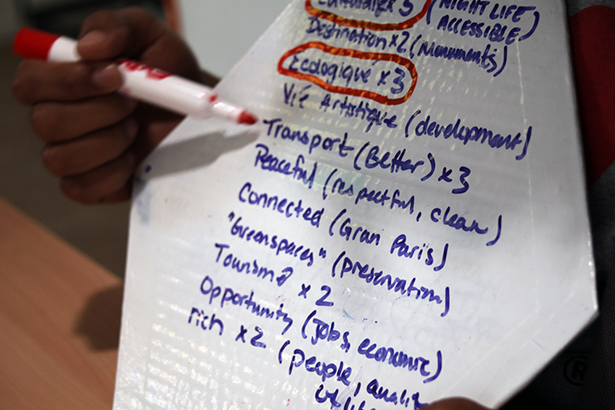 x 3 (NIGHT LIFE
ACCESSIBLE)
Destination x 2 (Monuments)
Ecologique x 3
Vie Artistique (development)
Transport (Better) x 3
Peaceful (respectful, clean)
Connected (Gran Paris)
"Greenspaces" (preservation)
Tourisme x 2
Opportunity (jobs, economic)
rich x 2 (people, qualite